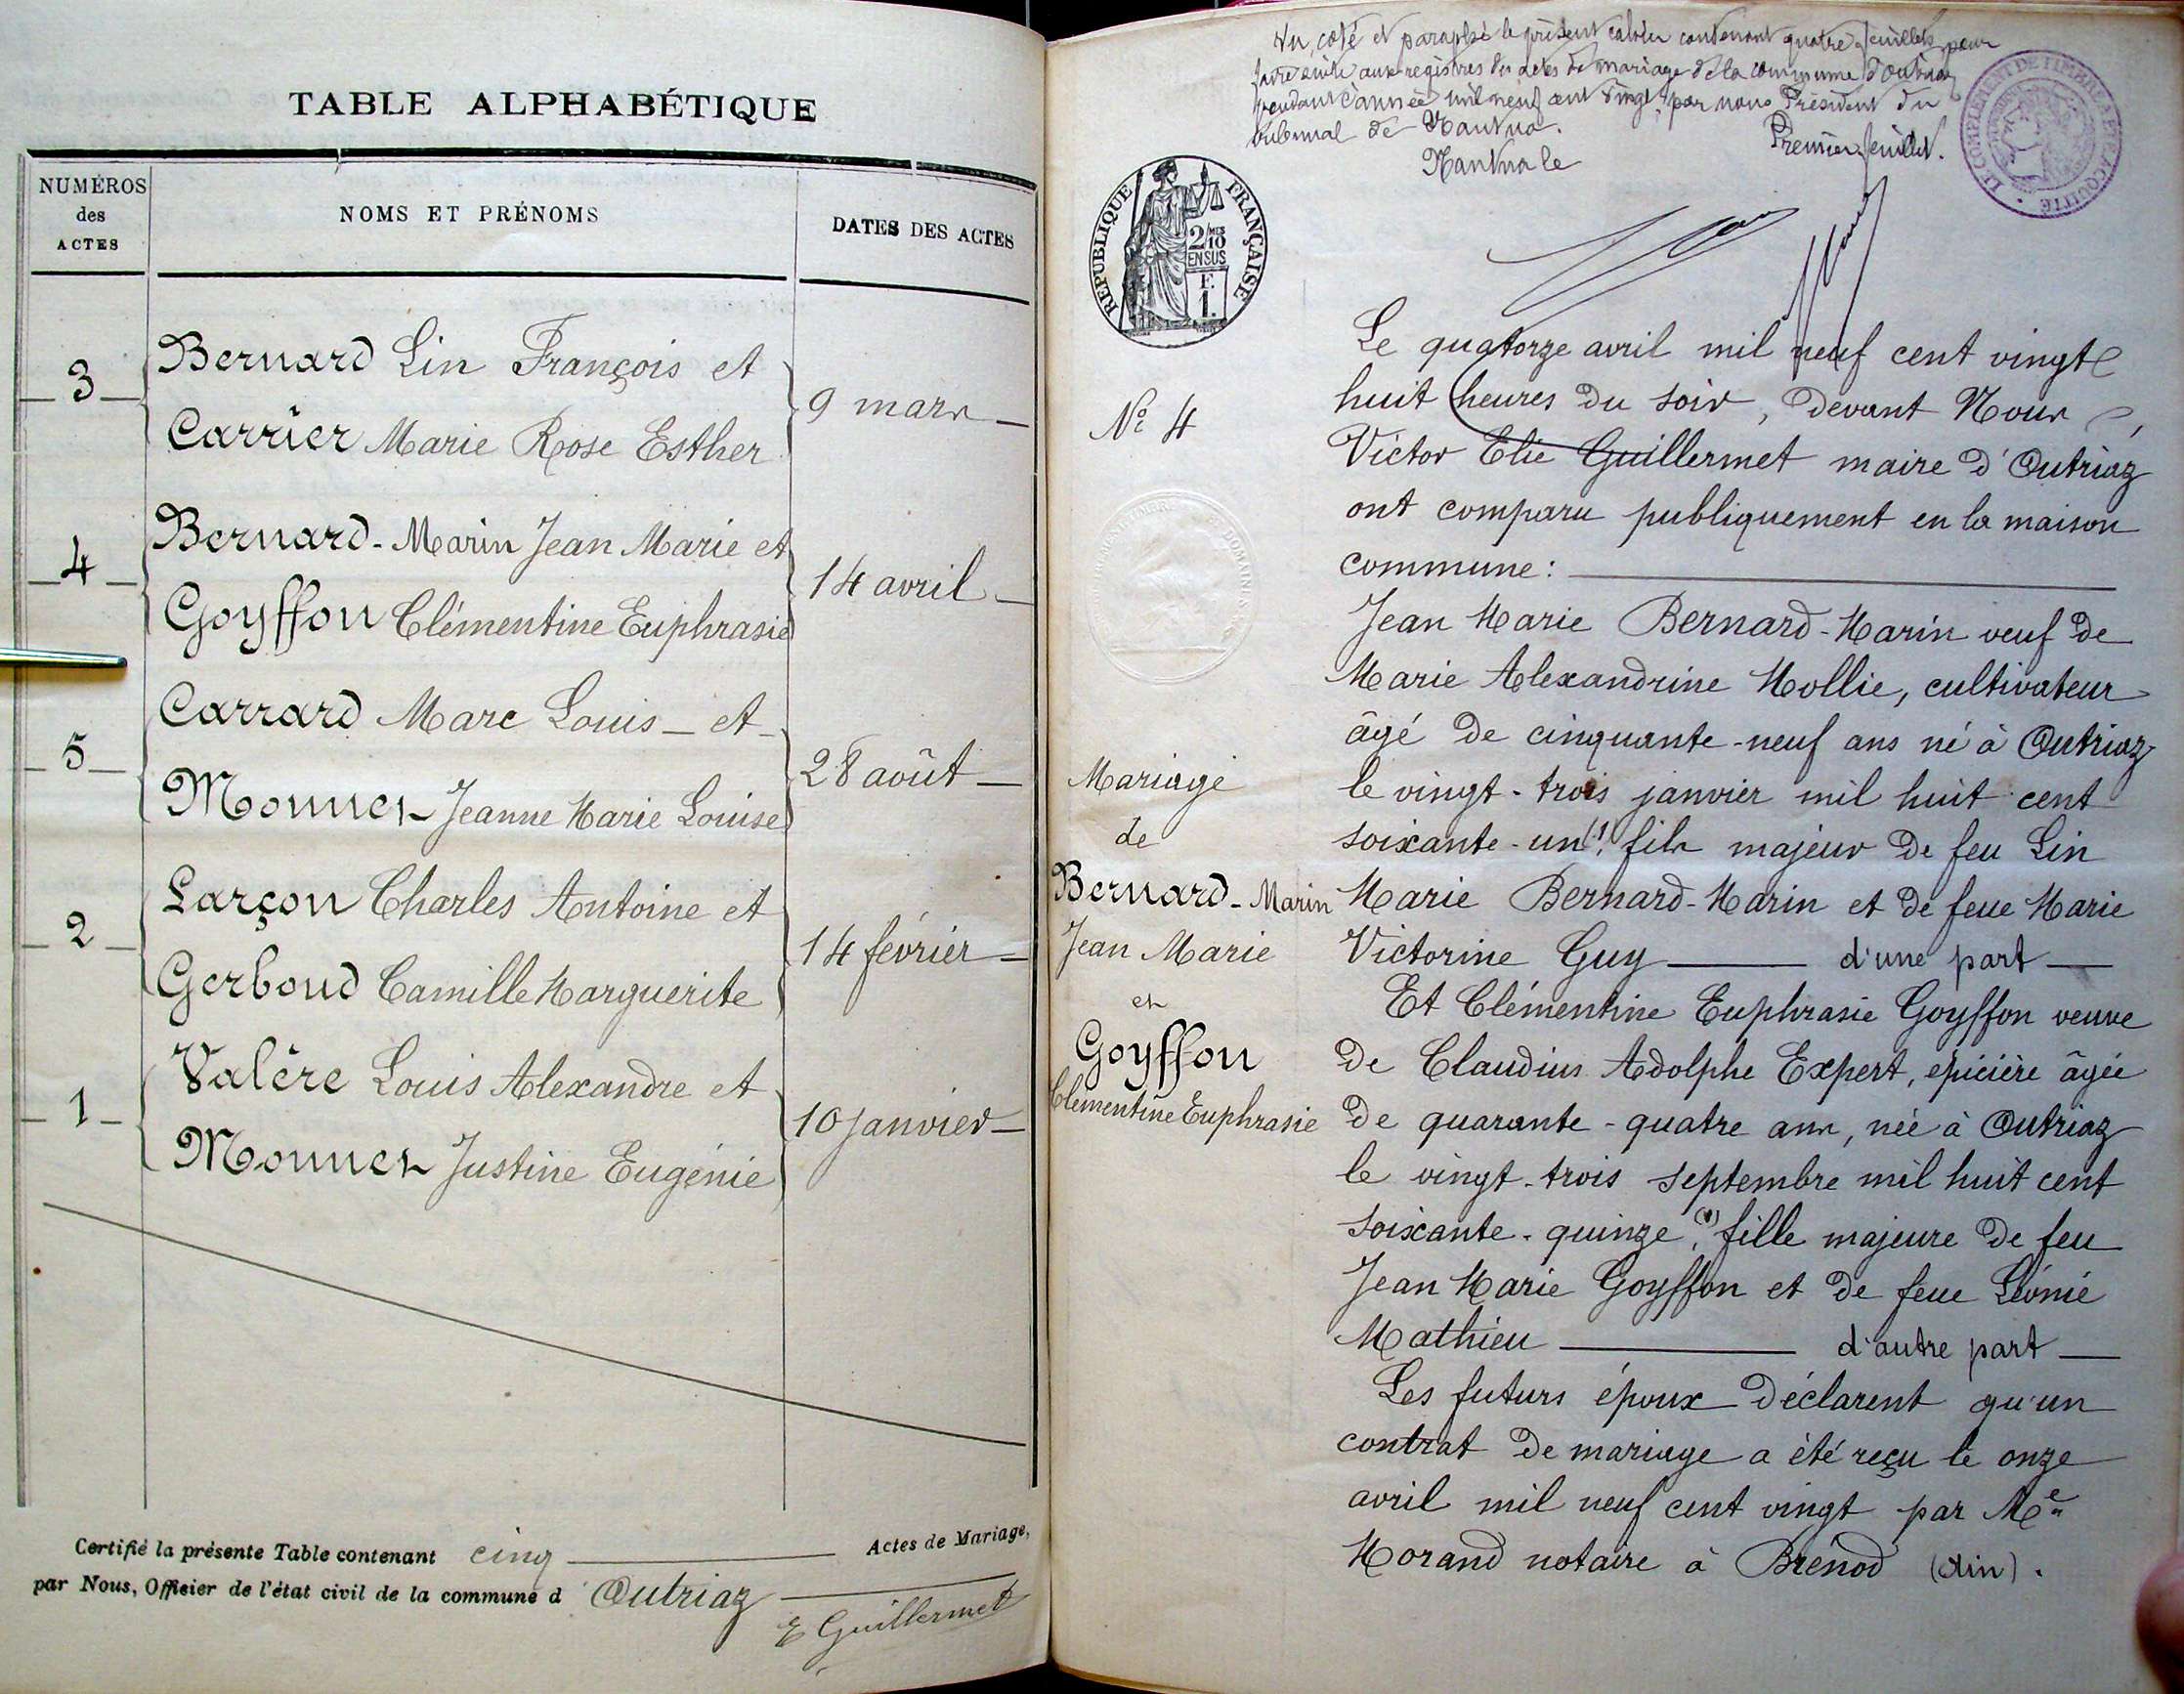 TABLE ALPHABÉTIQUE
NUMÉROS
des
ACTES
NOMS ET PRÉNOMS
DATES DES ACTES
3
Bernard Lin François et
Carrier Marie Rose Esther
9 mars
4
Bernard-Marin Jean Marie et
Goyffon Clémentine Euphrasie
14 avril
5
Carrard Marc Louis et
Monnet Jeanne Marie Louise
28 août
2
Larçon Charles Antoine et
Gerboud Camille Marguerite
14 février
1
Valère Louis Alexandre et
Monnet Justine Eugénie
10 janvier
Certifié la présente Table contenant cinq Actes de Mariage,
par Nous, Officier de l'état civil de la commune d Outriaz
E Guillermet
Vu, coté et paraphé le présent cahier contenant quatre feuillets pour
faire suite aux registres des actes de mariage de la commune d'Outriaz
pendant l'année mil neuf cent vingt, par nous Président du
tribunal de Nantua.
Premier feuillet.
Nantua le
LE COMPLÉMENT DE TIMBRE A ÉTÉ ACQUITTÉ
RÉPUBLIQUE FRANÇAISE
2/10 MES
EN SUS
F.
1.
N° 4
Mariage
de
Bernard-Marin
Jean Marie
et
Goyffon
Clémentine Euphrasie
Le quatorze avril mil neuf cent vingt
huit heures du soir, devant Nous
Victor Elie Guillermet maire d'Outriaz
ont comparu publiquement en la maison
commune:
Jean Marie Bernard-Marin veuf de
Marie Alexandrine Mollie, cultivateur
âgé de cinquante-neuf ans né à Outriaz
le vingt-trois janvier mil huit cent
soixante-un (1), fils majeur de feu Lin
Marie Bernard-Marin et de feue Marie
Victorine Guy d'une part
Et Clémentine Euphrasie Goyffon veuve
de Claudius Adolphe Expert, épicière âgée
de quarante-quatre ans, née à Outriaz
le vingt-trois septembre mil huit cent
soixante-quinze, fille majeure de feu
Jean Marie Goyffon et de feue Léonie
Mathieu d'autre part
Les futurs époux déclarent qu'un
contrat de mariage a été reçu le onze
avril mil neuf cent vingt par Me
Morand notaire à Brénod (Ain).